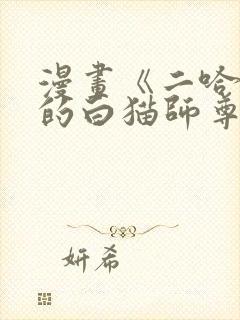 漫畫《二哈
的白猫師尊
妍希